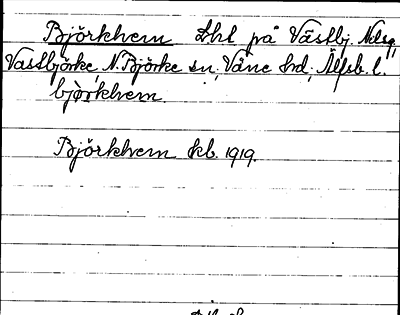 Björkhem Lhl på Västbj. Nedreg.
Västbjörke, N. Björke sn, Väne hd, Älfsb. l.
björkhem
Björkhem kb. 1919.